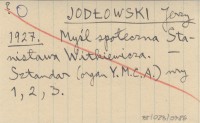 JODŁOWSKI Jerzy
1927. Myśl społeczna Sta-
nisława Witkiewicza. —
Sztandar (organ Y.M.C.A.) nry
1, 2, 3.